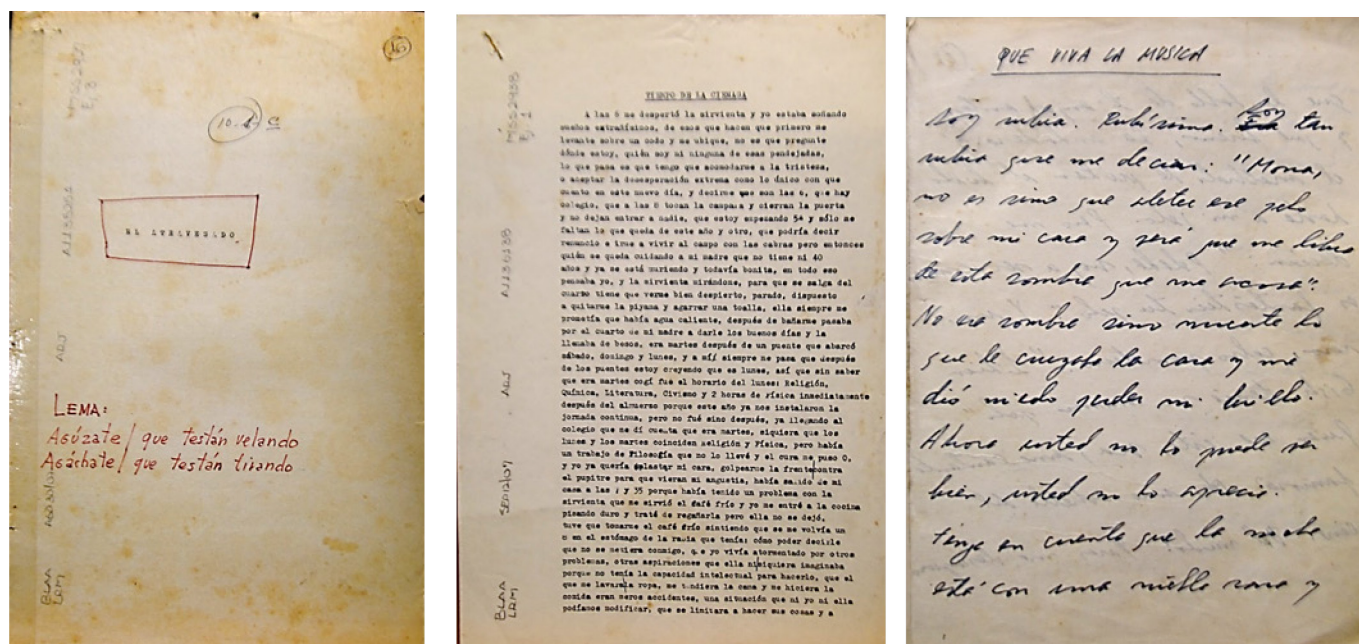 16
EL ATRAVESADO
LEMA:
Agúzate / que testán velando
Agáchate / que testán tirando
ADJ
BLAA
LRM
TIEMPO DE LA CIENAGA
A las 6 me despertó la sirvienta y yo estaba soñando
sueños extrañísimos, de esos que hacen que primero me
levante sobre un codo y me ubique, no es que pregunte
dónde estoy, quién soy ni ninguna de esas pendejadas,
lo que pasa es que tengo que acomodarme a la tristeza,
o aceptar la desesperación extrema como lo único con que
cuento en este nuevo día, y decirme que son las 6, que hay
colegio, que a las 8 tocan la campana y cierran la puerta
y no dejan entrar a nadie, que estoy empezando 5º y sólo me
faltan lo que queda de este año y otro, que podría decir
renuncio e irme a vivir al campo con las cabras pero entonces
quién se queda cuidando a mi madre que no tiene ni 40
años y ya se está muriendo y todavía bonita, en todo eso
pensaba yo, y la sirvienta mirándome, para que se salga del
cuarto tiene que verme bien despierto, parado, dispuesto
a quitarme la piyama y agarrar una toalla, ella siempre me
prometía que había agua caliente, después de bañarme pasaba
por el cuarto de mi madre a darle los buenos días y la
llenaba de besos, era martes después de un puente que abarcó
sábado, domingo y lunes, y a mí siempre me pasa que después
de los puentes estoy creyendo que es lunes, así que sin saber
que era martes cogí fue el horario del lunes: Religión,
Química, Literatura, Civismo y 2 horas de Física inmediatamente
después del almuerzo porque este año ya nos instalaron la
jornada continua, pero no fué sino después, ya llegando al
colegio que me dí cuenta que era martes, siquiera que los
lunes y los martes coinciden Religión y Física, pero había
un trabajo de Filosofía que no lo llevé y el cura me puso 0,
y yo ya quería aplastar mi cara, golpearme la frente contra
el pupitre para que vieran mi angustia, había salido de mi
casa a las 7 y 35 porque había tenido un problema con la
sirvienta que me sirvió el café frío y yo me entré a la cocina
pisando duro y traté de regañarla pero ella no se dejó,
tuve que tomarme el café frío sintiendo que se me volvía un
o en el estómago de la rabia que tenía: cómo poder decirle
que no se metiera conmigo, que yo vivía atormentado por otros
problemas, otras aspiraciones que ella ni siquiera imaginaba
porque no tenía la capacidad intelectual para hacerlo, que el
que me lavara la ropa, me tendiera la cama y me hiciera la
comida eran meros accidentes, una situación que ni yo ni ella
podíamos modificar, que se limitara a hacer sus cosas y a
ADJ
BLAA
LRM
QUE VIVA LA MUSICA
Soy rubia. Rubísima. Soy tan
rubia que me decían: "Mona,
no es sino que aletee ese pelo
sobre mi cara y verá que me libra
de esta sombra que me acosa".
No era sombra sino muerte lo
que le cruzaba la cara y me
dió miedo perder mi brillo.
Ahora usted no lo puede ver
bien, usted no lo aprecia.
tenga en cuenta que la noche
está con una niebla rara y